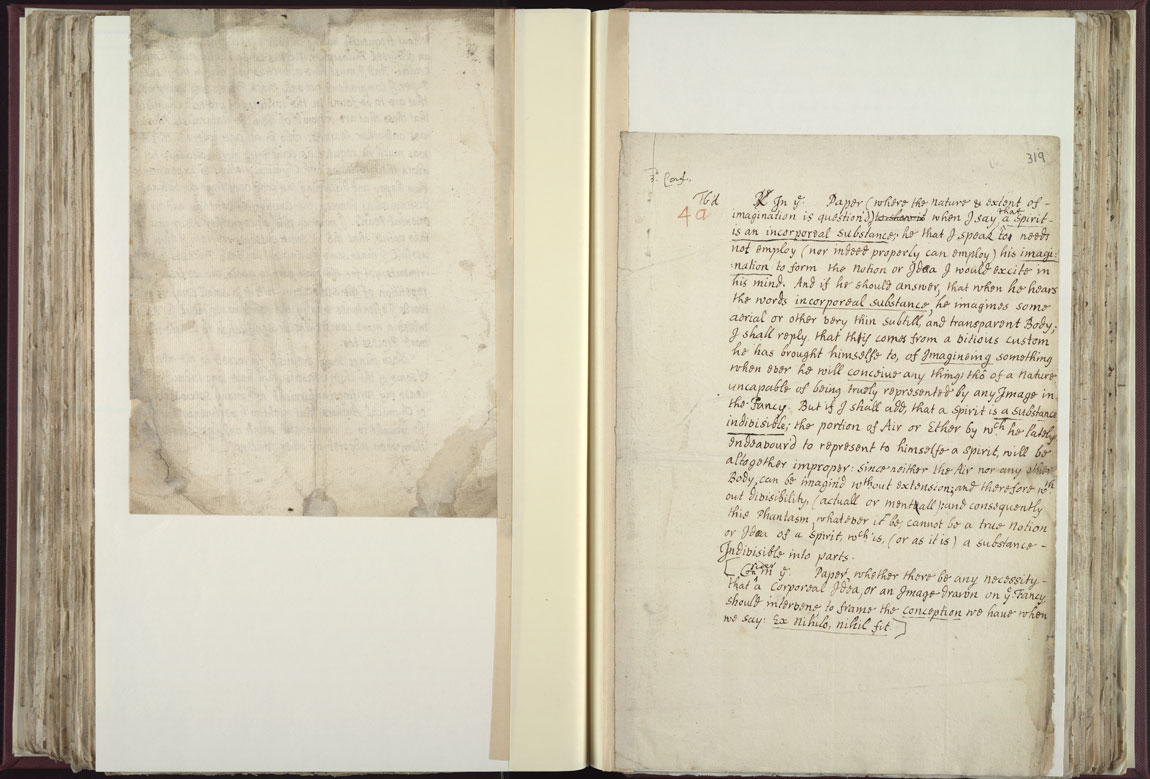 319
3. Conf.
76d
4a
In yͤ. Paper (where the nature & extent of -
imagination is question'd) when I say that a Spirit -
is an incorporeal substance; he that I speak to, needs
not employ (nor indeed properly can employ) his imagi:
nation to form the Notion or Idea I would excite in
his mind. And if he should answer, that when he hears
the words incorporeal substance, he imagines some
aerial or other very thin subtill, and transparent Body;
I shall reply, that this comes from a vitious custom
he has brought himselfe to, of Imagineing something
when ever he will conceive any thing; tho' of a Nature
uncapable of being truely represented by any Image in
the Fancy. But if I shall add, that a Spirit is a substance
indivisible; the portion of Air or Ether by wᶜʰ he lately
endeavour'd to represent to himselfe a Spirit, will be
altogether improper: Since neither the Air nor any other
Body, can be imagind without extension; and therefore wᵗʰ
out divisibility, (actuall or mentall) and consequently
this Phantasm, whatever it be, cannot be a true Notion
or Idea of a Spirit, wᶜʰ is, (or as it is) a substance -
Indivisible into parts.
in yͤ. Paper, whether there be any necessity -
that a Corporeal Idea, or an Image drawn on yͤ Fancy
should intervene, to frame the Conception we have when
we say: Ex Nihilo, nihil fit]